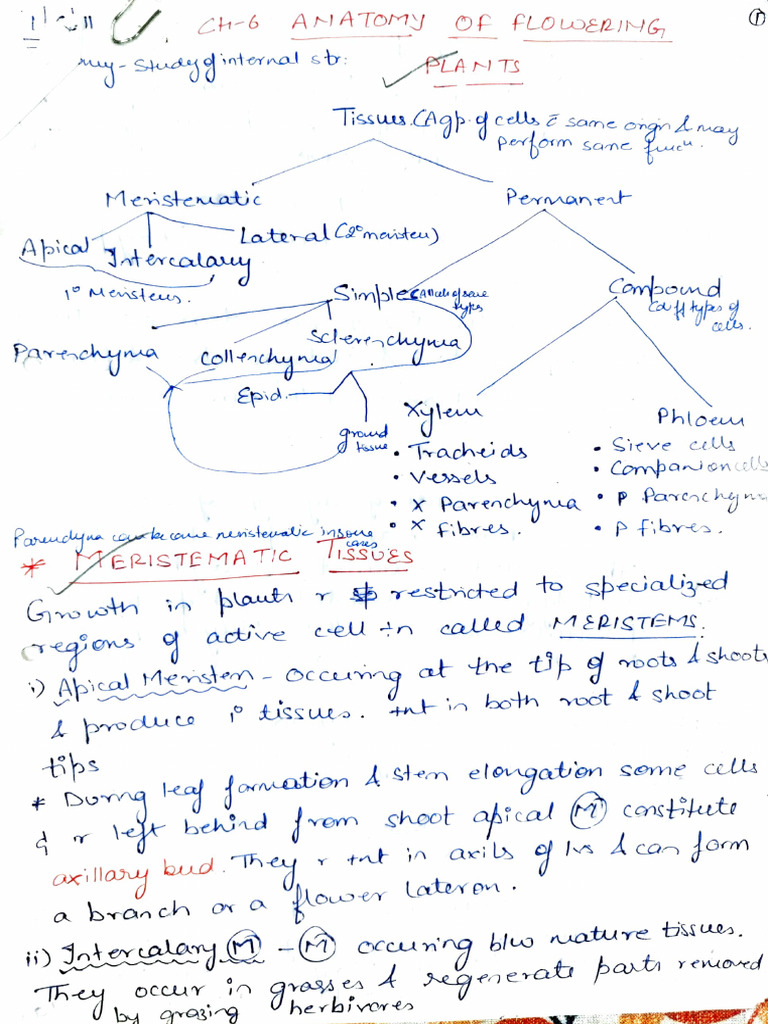 CH-6 ANATOMY OF FLOWERING
①
Study of internal str:
PLANTS
Tissues (A gp. of cells c̄ same origin & may
perform same funcⁿ.
Meristematic
Permanent
Apical
Intercalary
Lateral (2° meristem)
1° Meristems.
Simple
Compound
(diff types of
cells.
Parenchyma
Collenchyma
Sclerenchyma
Epid.
ground
tissue
Xylem
• Tracheids
• Vessels
• X Parenchyma
• X fibres.
Phloem
• Sieve cells
• Companion cells
• P Parenchyma
• P fibres.
Parenchyma can become meristematic in some
cases
* MERISTEMATIC TISSUES
Growth in plants r restricted to specialized
regions of active cell ÷n called MERISTEMS.
i) Apical Meristem - occuring at the tip of roots & shoots
& produce 1° tissues. +nt in both root & shoot
tips
* During leaf formation & stem elongation some cells
& r left behind from shoot apical Ⓜ constitute
axillary bud. They r +nt in axils of lvs & can form
a branch or a flower lateron.
ii) Intercalary Ⓜ - Ⓜ occuring b/w mature tissues.
They occur in grasses & regenerate parts removed
by grazing herbivores